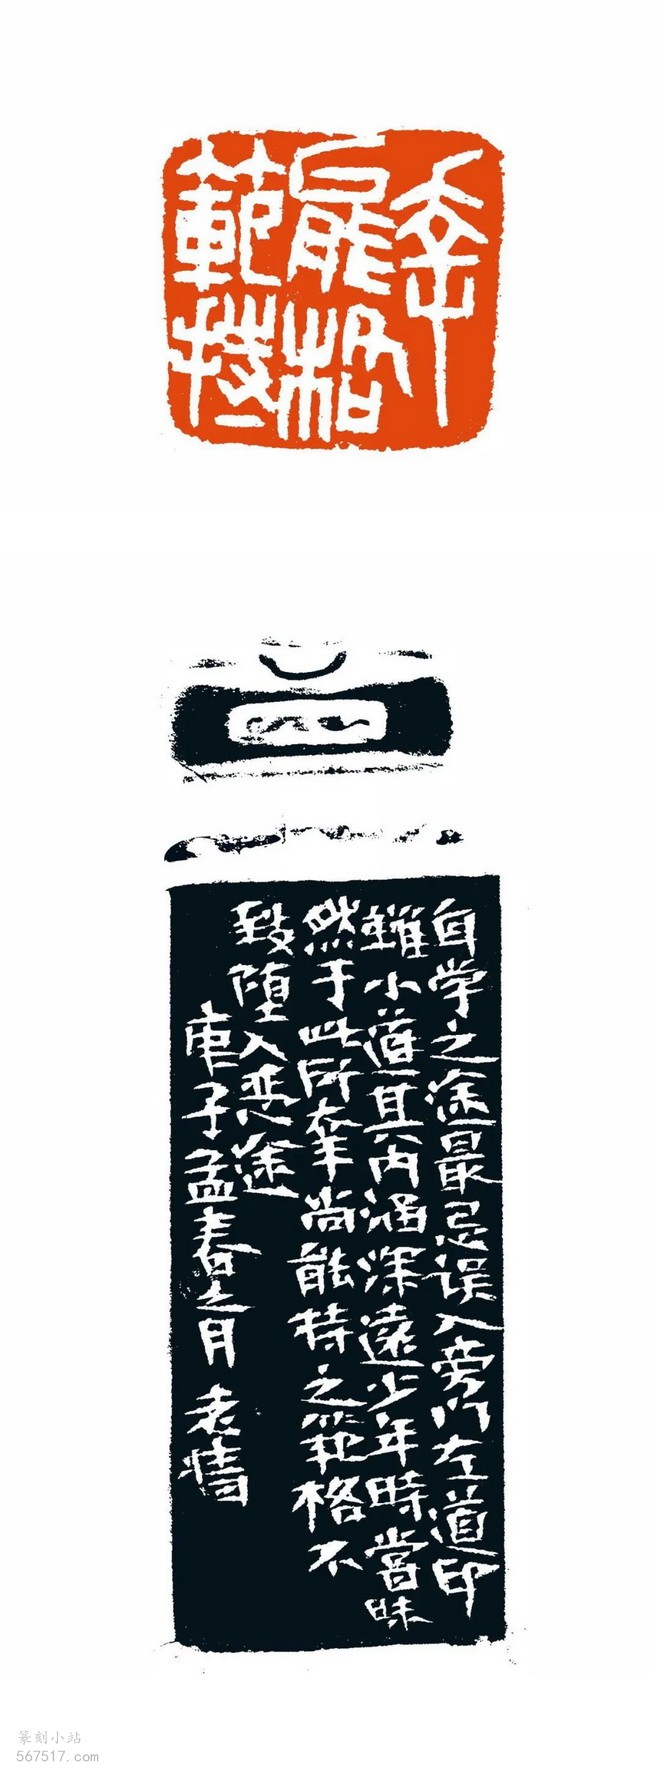 幸
能格
範
自学之途最忌误入旁门左道印
雖小道其内涵深遠少年時嘗昧
然于此所幸尚能持之範格不
致堕入恶途
庚子孟春之月
篆刻小站
567517.com